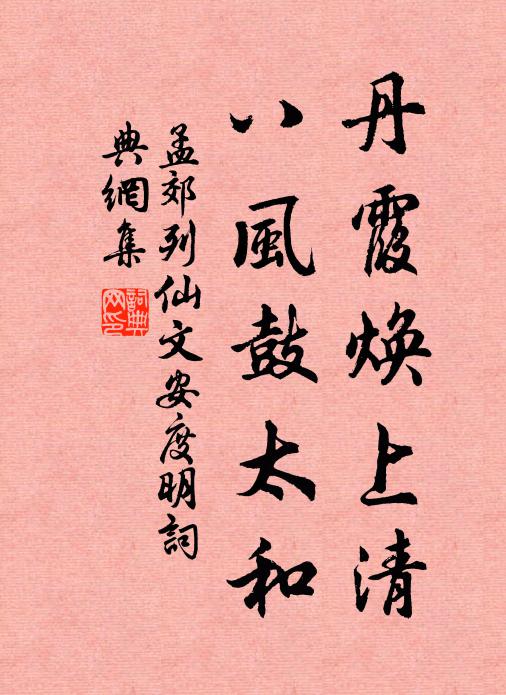 丹霞煥上清
八風鼓太和
孟郊列仙文安度明詞
典網集
詞典網印